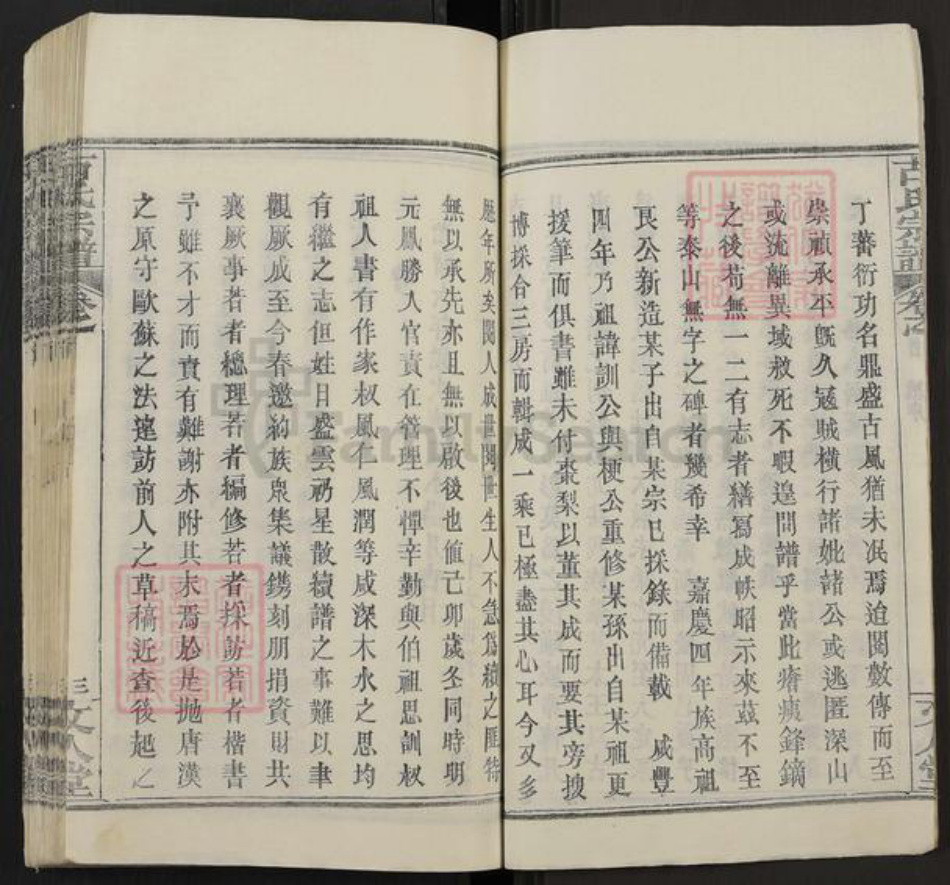 古氏宗譜
丁蕃衍功名鼎盛古風猶未泯焉迨閱數傳而至
崇禎承平既久寇賊橫行諸妣諸公或逃匿深山
或流離異域救死不暇遑問譜乎當此瘡痍鋒鏑
之後苟無一二有志者繕寫成帙昭示來茲不至
等泰山無字之碑者幾希幸 嘉慶四年族高祖
艮公新造某子出自某宗已採錄而備載 咸豐
四年乃祖諱訓公與梗公重修某孫出自某祖更
援筆而俱書雖未付棗梨以董其成而要其旁搜
博採合三房而輯成一乘已極盡其心耳今又多
歷年所矣閱人成世閱世生人不急為續之匪特
無以承先亦且無以啟後也值己卯歲冬同時明
元鳳勝人官責在管理不憚辛勤與伯祖思訓叔
祖人書有作家叔風仁風潤等咸深木水之思均
有繼之志但姓日盛雲礽星散續譜之事難以聿
觀厥成至今春邀約族眾集議鐫刻朋捐資財共
襄厥事若者總理若者編修若者採訪若者楷書
予雖不才而責有難謝亦附其末焉於是拋唐漢
之原守歐蘇之法遠訪前人之草稿近查後起之
古氏宗譜
卷之
三
FamilySearch